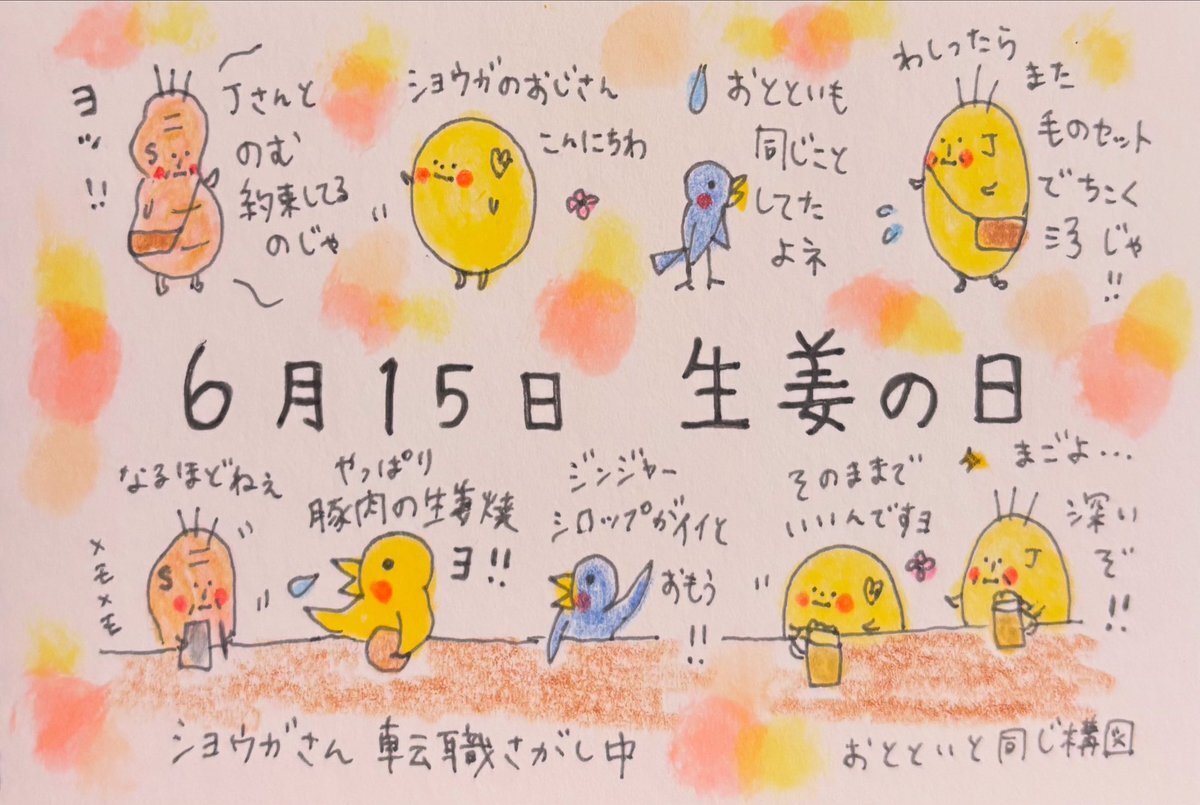 ヨッ!!
S
Jさんと
のむ
約束してる
のじゃ
ショウガのおじさん
こんにちわ
おとといも
同じこと
してた
よネ
わしったら
また
毛のセット
でちこく
J
じゃ
!!
6月15日 生姜の日
なるほどねぇ
メモメモ
S
やっぱり
豚肉の生姜焼
ヨ!!
ジンジャー
シロップがイイと
おもう
!!
そのままで
いいんですヨ
まごよ…
深い
ぞ
!!
J
ショウガさん 転職さがし中
おとといと同じ構図